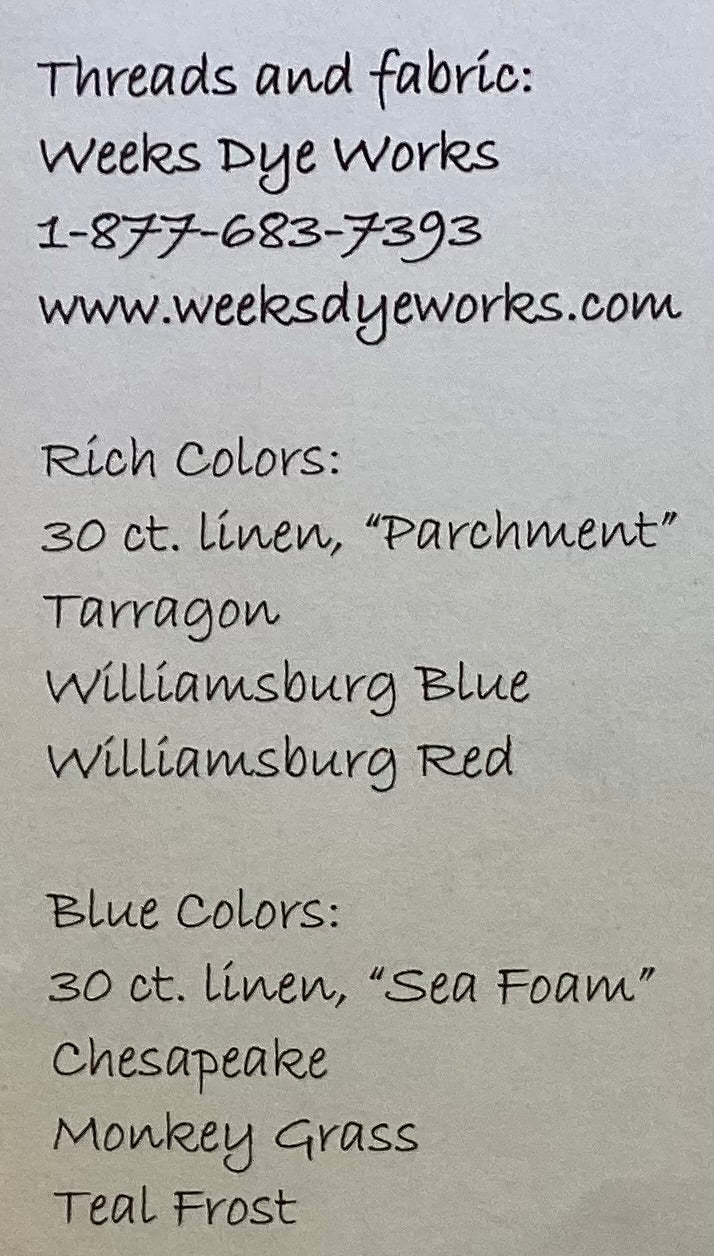 Threads and fabric:
Weeks Dye Works
1-877-683-7393
www.weeksdyeworks.com
Rich Colors:
30 ct. linen, "Parchment"
Tarragon
Williamsburg Blue
Williamsburg Red
Blue Colors:
30 ct. linen, "Sea Foam"
Chesapeake
Monkey Grass
Teal Frost